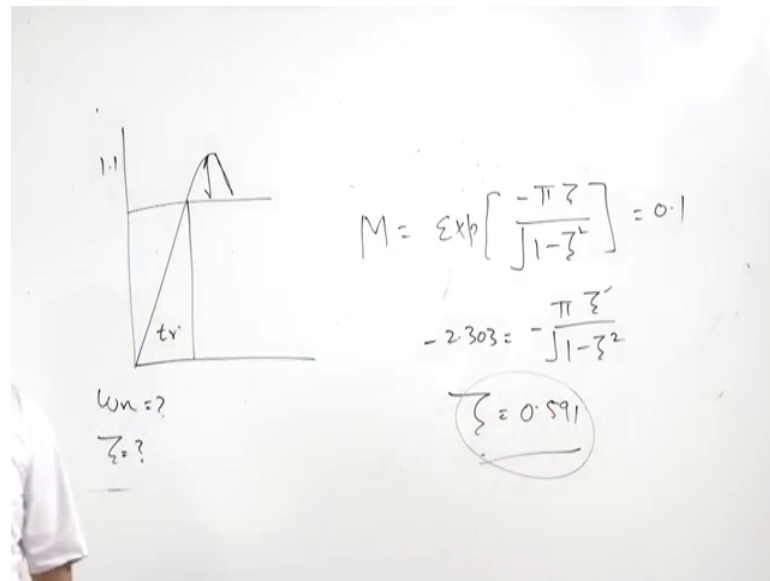 1.1
tr
ωn = ?
ζ = ?
M = Exp[ -πζ / √1-ζ² ] = 0.1
-2.303 = - πζ / √1-ζ²
ζ = 0.591